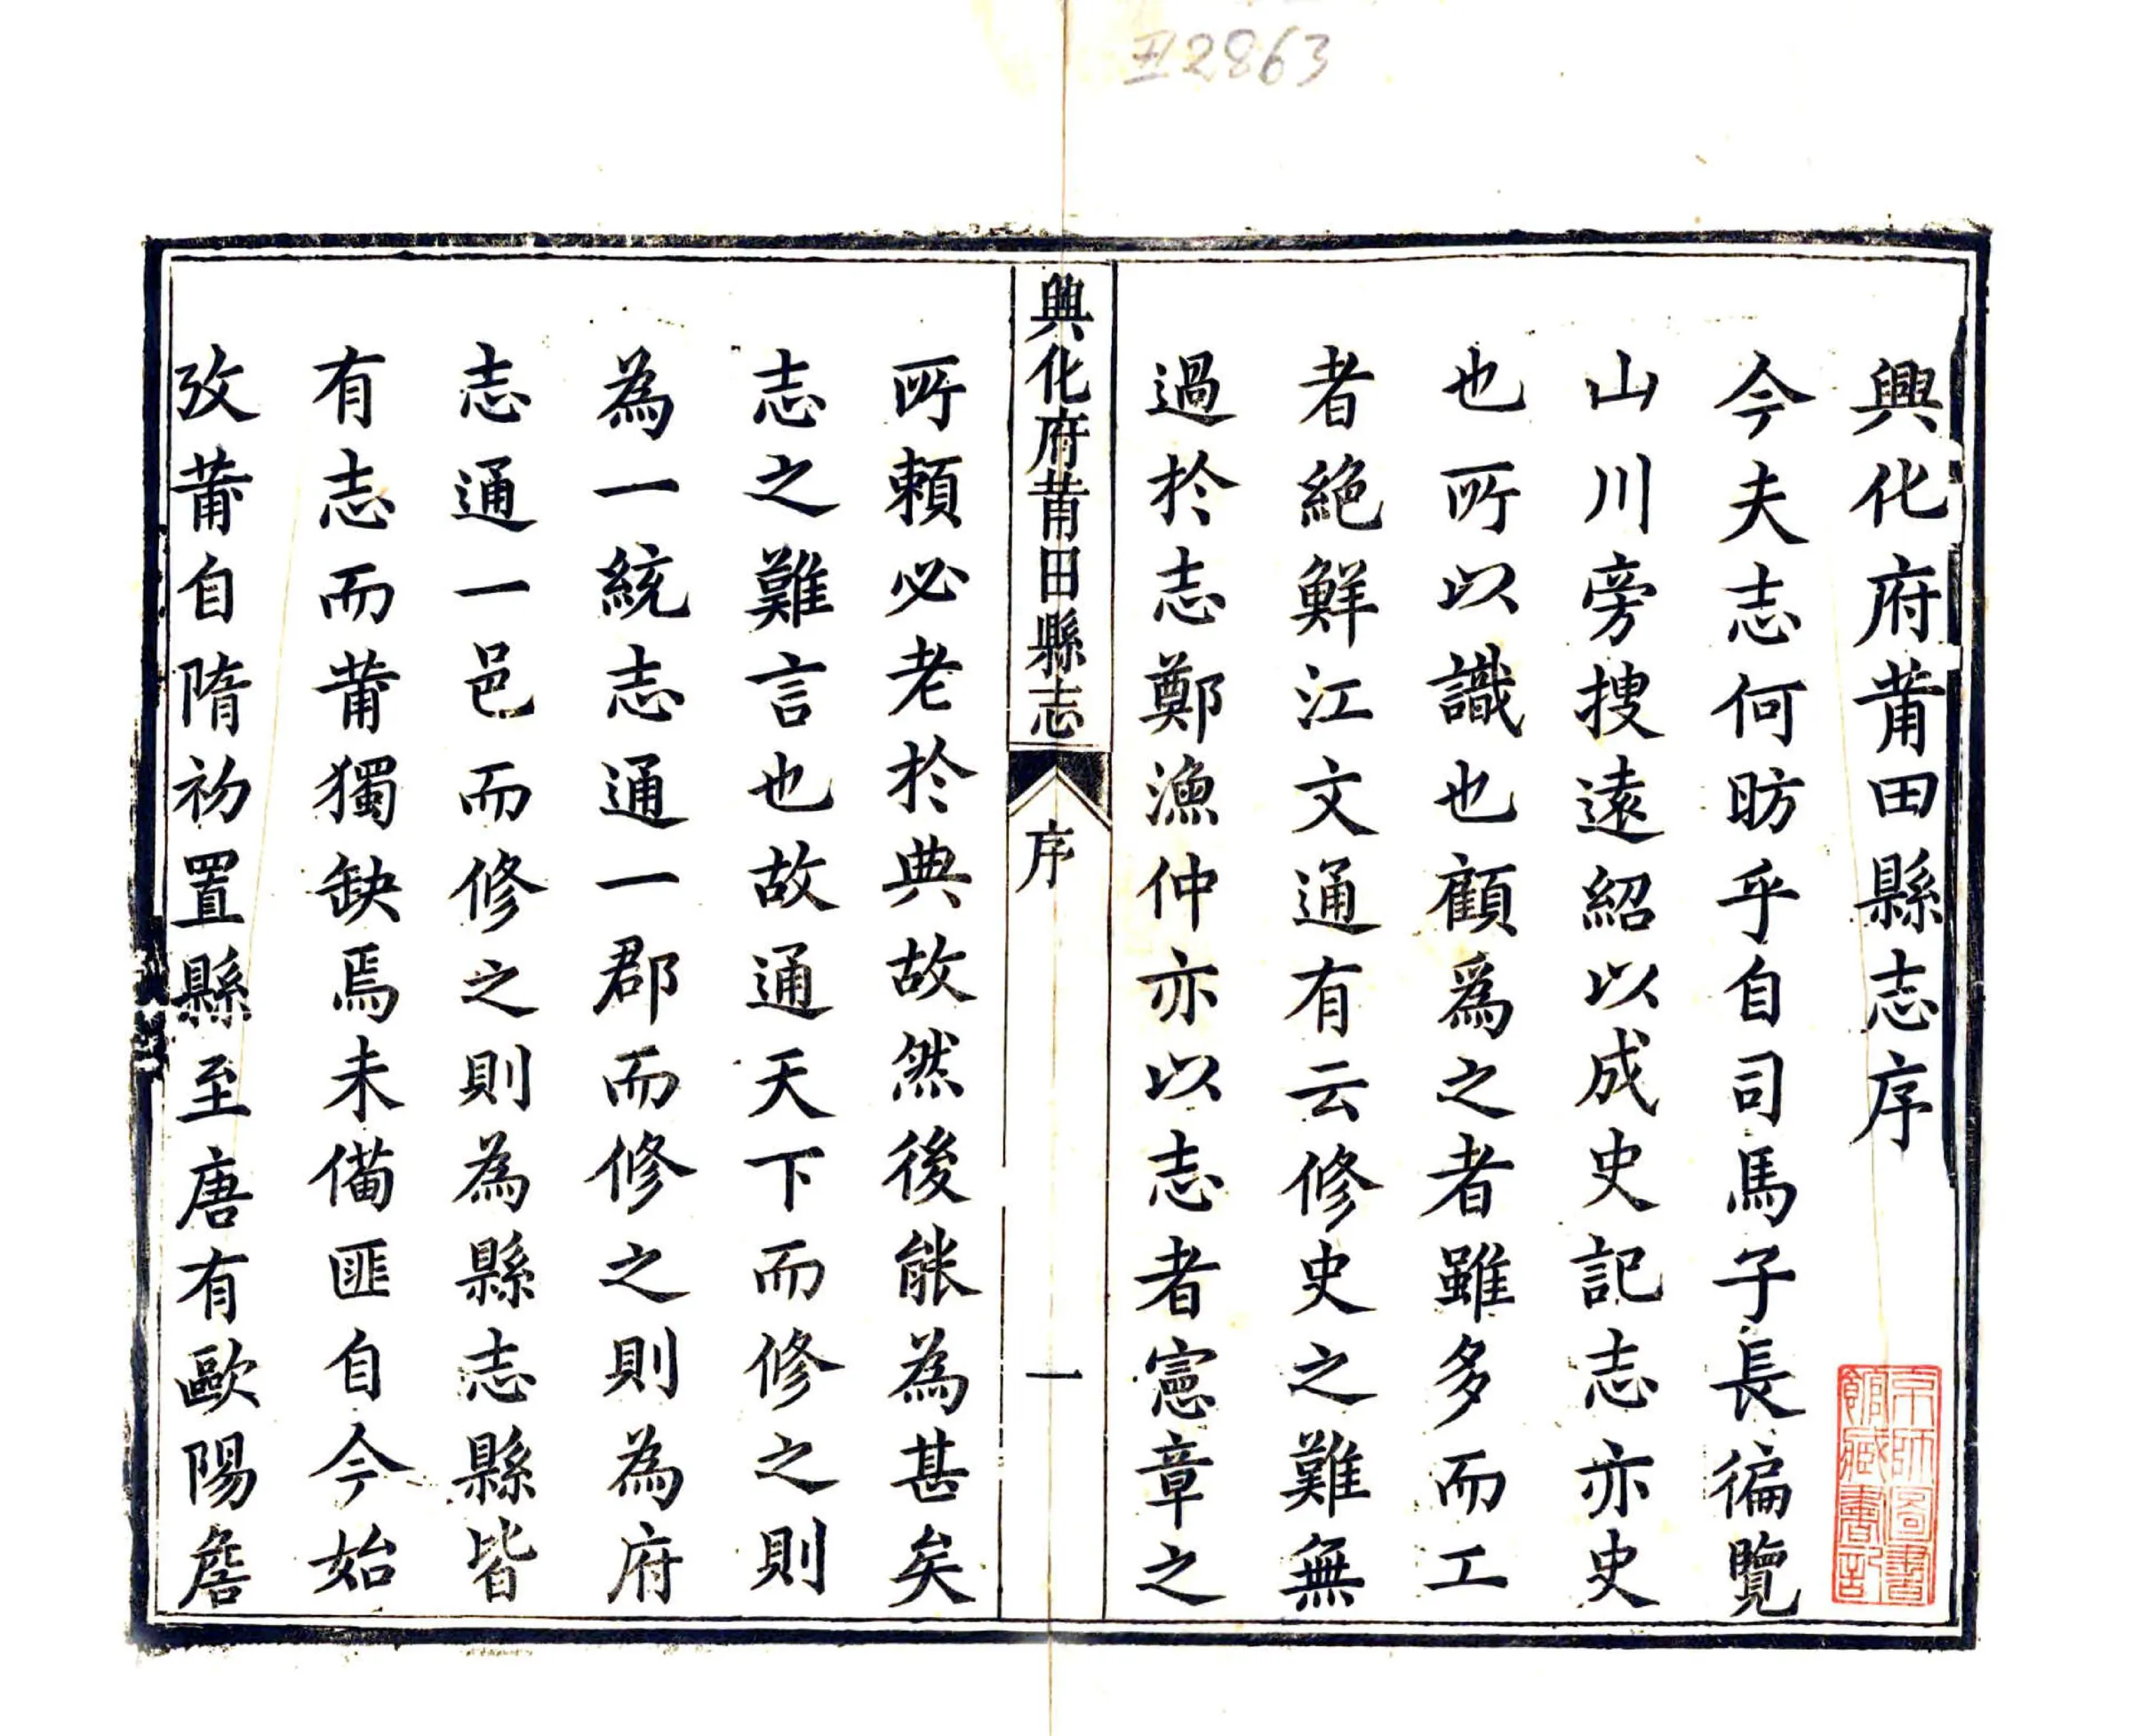 五2863
興化府莆田縣志序
今夫志何昉乎自司馬子長徧覽
山川旁搜遠紹以成史記志亦史
也所以識也顧爲之者雖多而工
者絕鮮江文通有云修史之難無
過於志鄭漁仲亦以志者憲章之
興化府莆田縣志
序
一
所賴必老於典故然後能為甚矣
志之難言也故通天下而修之則
為一統志通一郡而修之則為府
志通一邑而修之則為縣志縣皆
有志而莆獨缺焉未備匪自今始
攷莆自隋初置縣至唐有歐陽詹
京師圖書
館藏書記